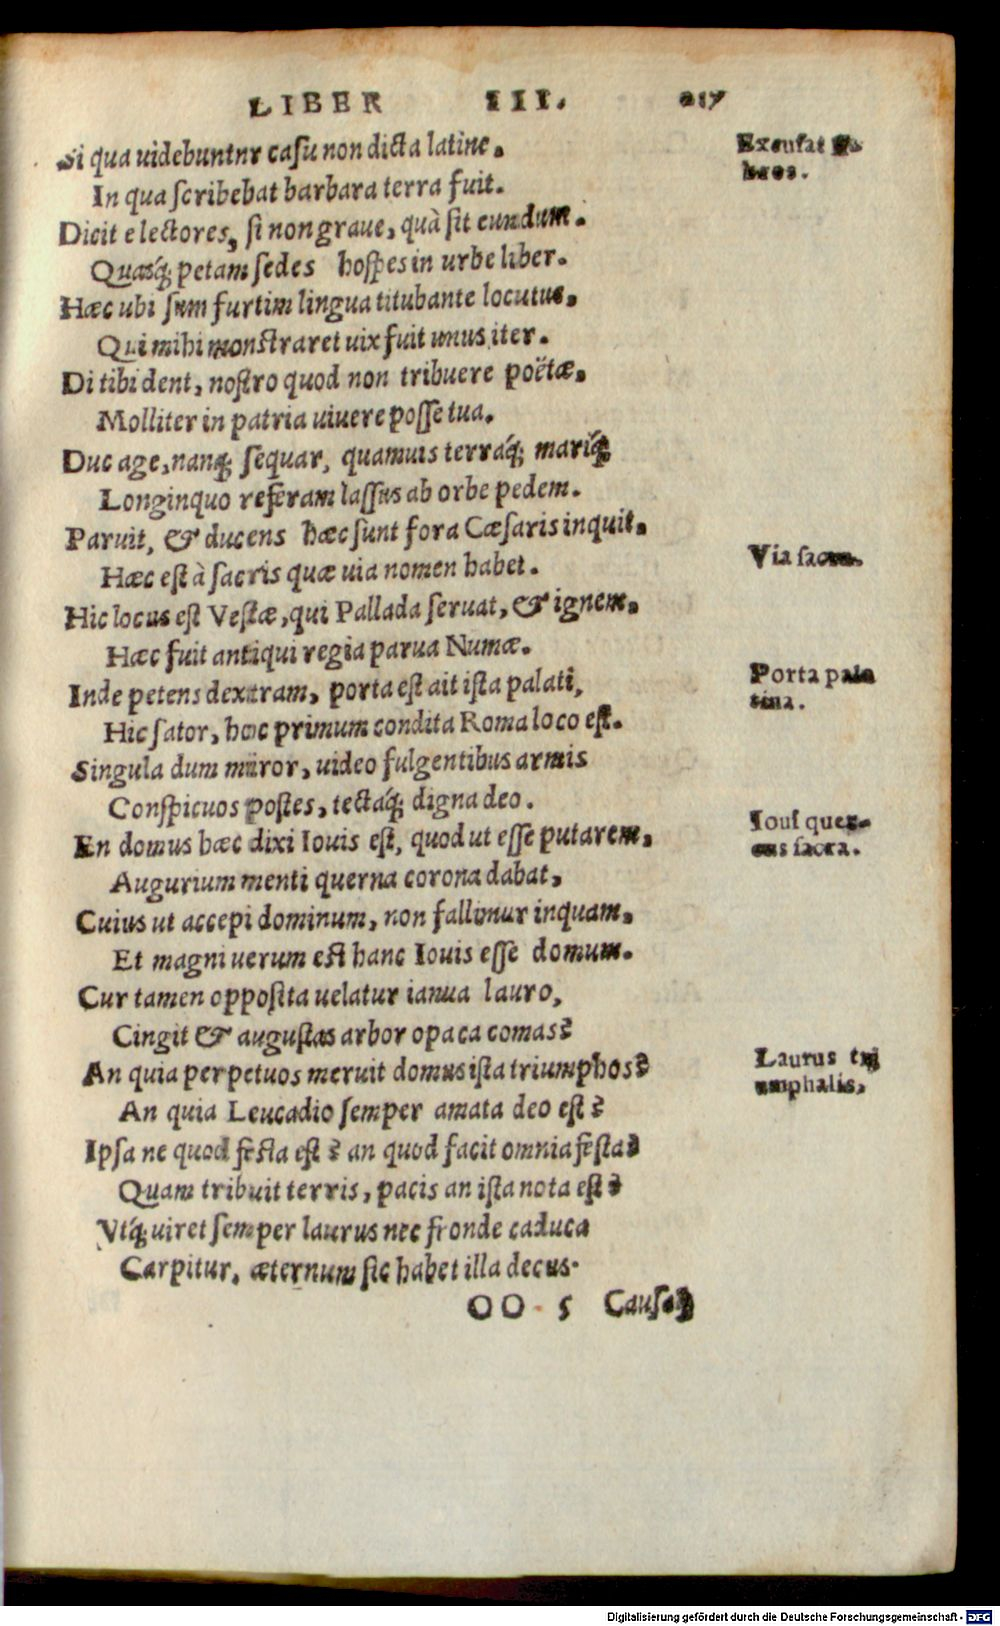 LIBER III. 217
Si qua uidebuntnr casu non dicta latine.
In qua scribebat barbara terra fuit.
Dicite lectores, si non graue, quà sit eundum.
Quasq́; petam sedes hospes in urbe liber.
Hæc ubi sum furtim lingua titubante locutus.
Qui mihi monstraret uix fuit unus iter.
Di tibi dent, nostro quod non tribuere poëtæ.
Molliter in patria uiuere posse tua.
Duc age, nanq; sequar, quamuis terraq́; mariq́;
Longinquo referam lassus ab orbe pedem.
Paruit, & ducens hæc sunt fora Cæsaris inquit.
Hæc est à sacris quæ uia nomen habet.
Hic locus est Vestæ, qui Pallada seruat, & ignem.
Hæc fuit antiqui regia parua Numæ.
Inde petens dextram, porta est ait ista palati,
Hic sator, hoc primum condita Roma loco est.
Singula dum miror, uideo fulgentibus armis
Conspicuos postes, tectaq́; digna deo.
En domus hæc dixi Iouis est, quod ut esse putarem,
Augurium menti querna corona dabat,
Cuius ut accepi dominum, non fallimur inquam.
Et magni uerum est hanc Iouis esse domum.
Cur tamen opposita uelatur ianua lauro,
Cingit & augustas arbor opaca comas?
An quia perpetuos meruit domus ista triumphos?
An quia Leucadio semper amata deo est?
Ipsa ne quod festa est? an quod facit omnia festa?
Quam tribuit terris, pacis an ista nota est?
Vtq́; uiret semper laurus nec fronde caduca
Carpitur, æternum sic habet illa decus.
OO 5 Causaq́;
Excusat
Via sacra.
Porta pala
tina.
Iouis quer-
cus sacra.
Laurus tri
umphalis.
Digitalisierung gefördert durch die Deutsche Forschungsgemeinschaft - DFG